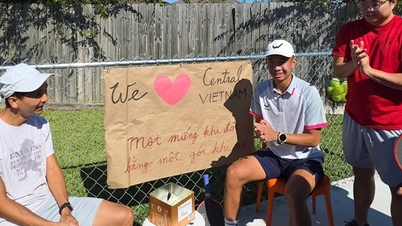 We Central
VIETNAM
Một miếng khi đói
bằng một gói khi